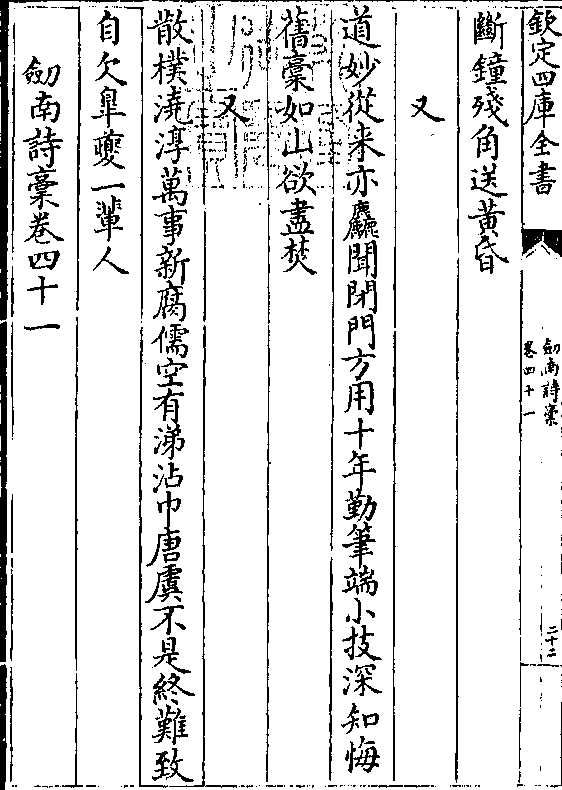 欽定四庫全書
劎南詩槀
卷四十一
二十二
斷鐘殘角送黃昏
又
道妙從来亦麤聞閉門方用十年勤筆端小技深知悔
舊槀如山欲盡焚
又
散樸澆淳萬事新腐儒空有涕沾巾唐虞不是終難致
自欠臯夔一輩人
劎南詩槀卷四十一